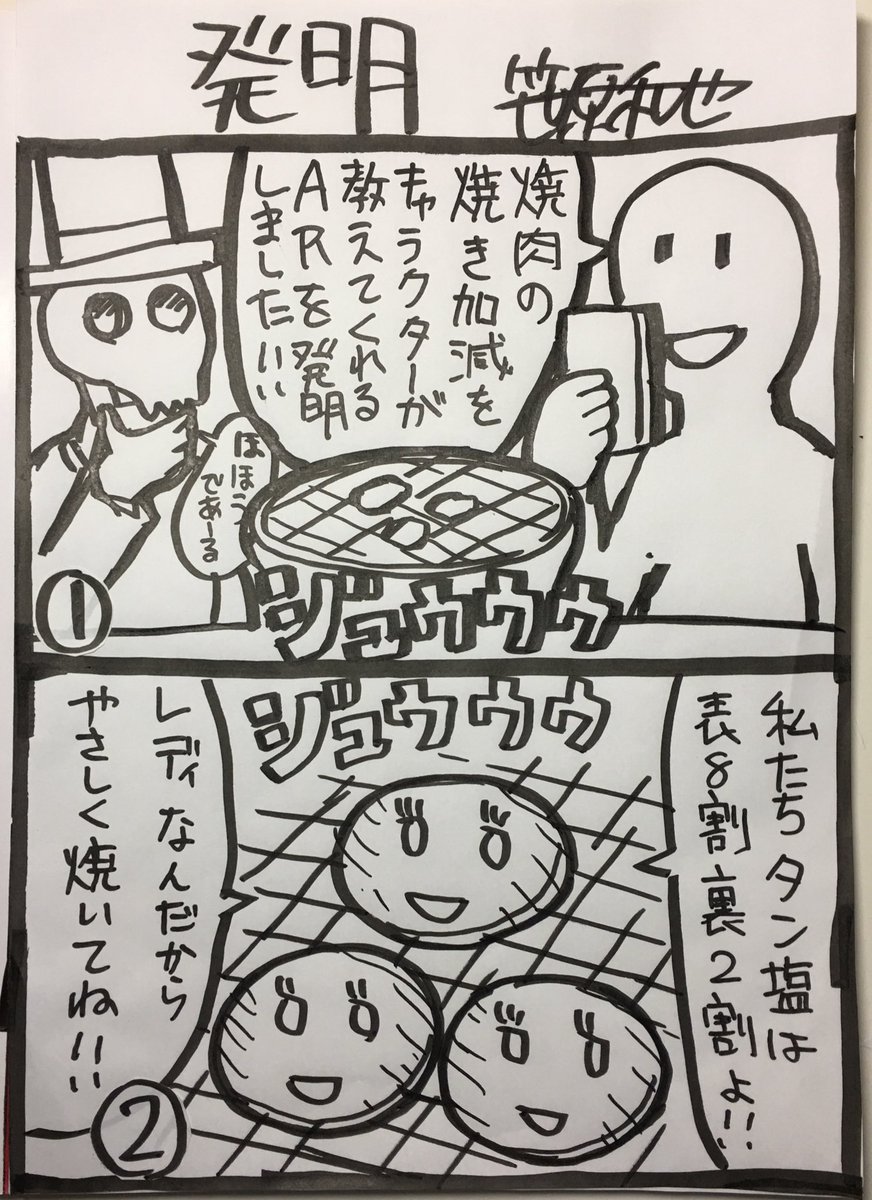 発明
笹原和也
焼肉の
焼き加減を
キャラクターが
教えてくれる
ARを発明
しました!!
ほほう
であーる
ジュウウウ
①
ジュウウウ
私たちタン塩は
表8割裏2割よ!!
レディなんだから
やさしく焼いてね!!
②